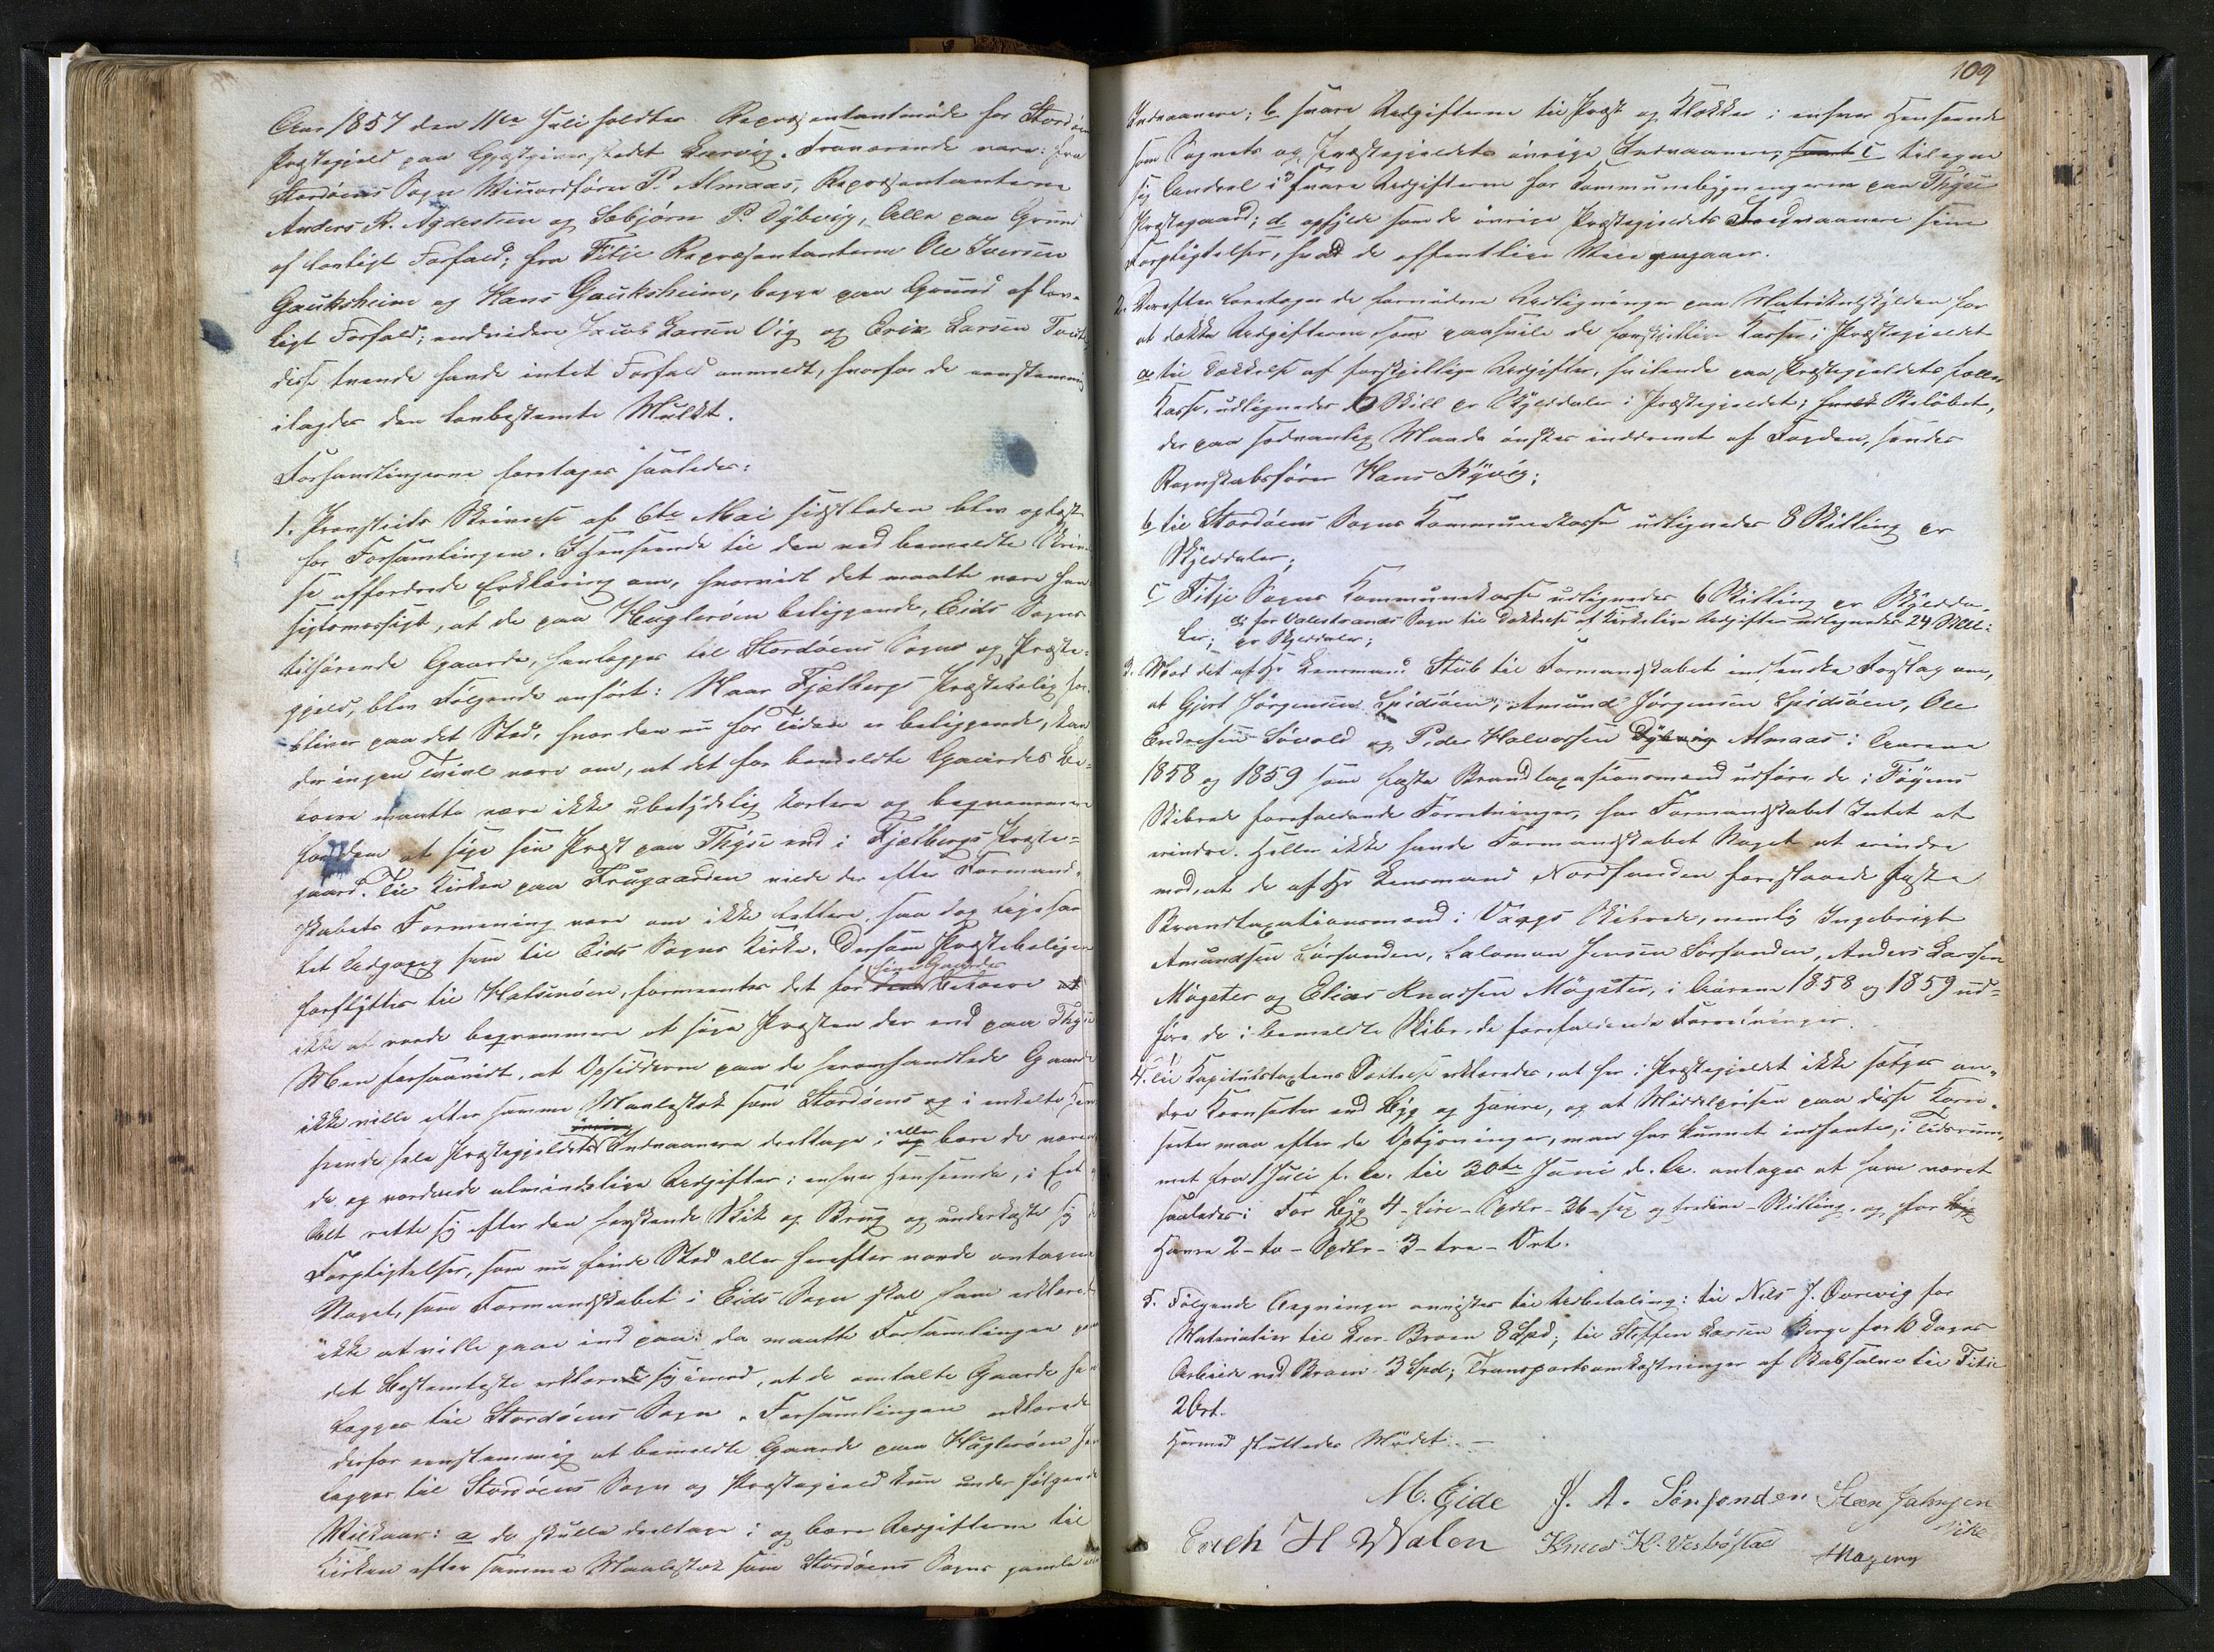 Aar 1857 den 11te Juli holdtes Repræsentantmöde for Stordöen
Præstegjeld paa Gjæstgiverstedet Leervig. Fraværende vare: fra
Stordöens Sogn Viceordförer P. Almaas, Repræsentanterne
Anders R. Agdestein og Sæbjörn P. Dybvig, Alle paa Grund
af lovligt Forfald; fra Fitje Repræsentanterne Ole Iversen
Gauksheim og Hans Gauksheim, begge paa Grund af lov-
ligt Forfald; endvidere Jacob Larsen Vig og Erik Larsen
disse tvende havde intet Forfald anmeldt, hvorfor de eenstemmig
ilagdes den lovbestemte Mulkt.
Forhandlingerne foretages saaledes:
1. Provstiets Skrivelse af 6te Mai sidstleden blev oplæst
for Forsamlingen. I Henseende til den ved bemeldte Skrivel-
se affordrede Erklæring om, hvorvidt det maatte være hen-
sigtsmæssigt, at de paa Huglerøen beliggende, Eids Sogns
tilhörende Gaarde, henlægges til Stordöens Sogn og Præste-
gjeld, blev Fölgende anfört: Naar Fjælbergs Præstebolig for-
bliver paa det Sted, hvor den nu for Tiden er beliggende, kan
der ingen Tvivl være om, at det for bemeldte Gaardes Be-
boere maatte være ikke ubetydelig kortere og beqvemmere
for dem at söge sin Præst paa Thyse end i Fjælbergs Præste-
gaard. Til Kirken paa Frugaarden vilde der efter Formand-
skabets Formening være om ikke lettere, saa dog ligesaa
let Adgang som til Eids Sogns Kirke. Dersom Præsteboligen
sine Gaardes
forflyttes til Halsenöen, formeentes det for Beboere at
ikke at vorde beqvemmere at söge Præsten der end paa Thyse
Men forsaavidt, at Opsidderne paa de heromhandlede Gaarde
ikke ville efter samme Maalestok som Stordöens og i enkelte Hen-
seende hele Præstegjeldets Indvaanere deeltage i eller bære de være-
de og vordende almindelige Udgifter i enhver Henseende, i Et
Alt rette sig efter den herskende Skik og Brug og underkaste sig de
Forpligtelser, som nu finde Sted eller herefter vorde antagne
Noget, som Formandskabet i Eids Sogn skal have erklæret
ikke at ville gaae ind paa: da maatte Forsamlingen paa
det Bestemteste erklære sig imod, at de omtalte Gaarde hen-
lægges til Stordöens Sogn. Forsamlingen erklærede
derfor eenstemmig at bemeldte Gaarde paa Huglerøen hen-
lægges til Stordöens Sogn og Præstegjeld kun under fölgende
Vilkaar: a de skulle deeltage i og bære Udgifterne til
Kirken efter samme Maalestok som Stordöens Sogns gamle
109
Indvaanere; b svare Udgifterne til Præst og Klokker i enhver Henseende
som Sognets og Præstegjeldets övrige Indvaanere; c tilegne
sig Andeel i svare Udgifterne for Kommunebygningerne paa Thyse
Præstegaard; d opfylde som de övrige Præstegjeldets Indvaanere sine
Forpligtelser, hvad de offentlige Veie angaaer.
2. Derefter foretoges de fornödne Udligninger paa Matrikulskylden for
at dække Udgifterne som paahvile de forskjellige Kasser i Præstegjeldet
a til Dækkelse af forskjellige Udgifter, hvilende paa Præstegjeldets fælles
Kasse, udlignedes 6 Skill pr Skylddaler i Præstegjeldet; Belöbet,
der paa sædvanlig Maade önskes inddrevet af Fogden, sendes
Regnskabsförer Hans Nysvig;
b til Stordöens Sogns Kommunekasse udlignedes 8 Skilling pr
Skylddaler;
c Fitje Sogns Kommunekasse udlignedes 6 Skilling pr Skyldda-
ler; d) for Valestrands Sogn til Dækkelse af kirkelige Udgifter udlignedes 24 Skill:
pr Skylddaler;
3. Mod det af Hr Lensmand Stub til Formandskabet indsendte Forslag om,
at Gjert Jörgensen Spidsöen, Amund Jörgensen Spidsöen, Ole
Endresen Sövold og Peder Halvorsen Dybvig Almaas i Aarene
1858 og 1859 som faste Brandtaxationsmænd udföre de i Föyens
Skibrede forefaldende Forretninger, har Formandskabet Intet at
erindre. Heller ikke havde Formandskabet Noget at erindre
mod, at de af Hr Lensmand Nordhunden foreslaaede faste
Brandtaxationsmænd i Vaags Skibrede, nemlig Ingebrigt
Amundsen Sörhunden, Salomon Jensen Sörhunden, Anders Larsen
Mögster og Elias Knudsen Mögster, i Aarene 1858 og 1859 ud-
före de i bemeldte Skibrede forefaldende Forretninger.
4. Til Kapitelstaxtens Sættelse erklæredes, at her i Præstegjeldet ikke sælges an-
dre Kornsorter end Byg og Havre, og at Middelprisen paa disse Korn-
sorter maa efter de Oplysninger, man har kunnet indhente, i Tidsrum-
met fra 1 Juli f. A. til 30te Juni d. A. antages at have været
saaledes: For Byg 4 - fire - Spdlr - 36 - sex og tredive - Skilling, og for Byg
Havre 2 - to - Spdlr - 3 - tre - Ort.
5. Fölgende Regninger anvistes til Udbetaling: til Nils J. Ourevig for
Materialier til Leer-Broen 8 Spd; til Steffen Larsen Berge for 10 Dages
Arbeide ved Broen 3 Spd; Transportomkostninger af til Fitje
2 Ort.
Hermed sluttedes Mödet. –
M. Eide J. A. Sörhunden Steen Johnsen
Vike
Erich H Walen Knud K. Vestböstad